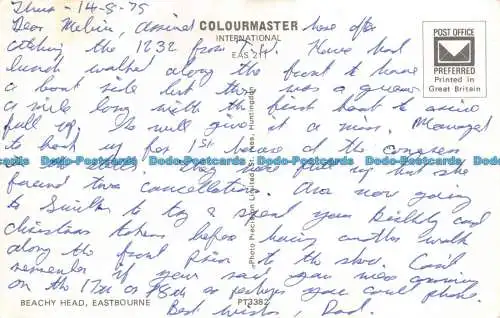 Thurs - 14-8-75
Dear Melvin, arrived here after
COLOURMASTER
INTERNATIONAL
EAS 211
catching the 1232 from T.W. Have had
lunch walked along the front to have
a boat ride but there was a queue
a mile long with the first boat to arrive
full up. So will give it a miss. Managed
to book up for 1st house at the congress
they were full up but she
found two cancellations. Are now going
to Smiths to try & spend your birthday card
christmas tokens before having another walk
along the front prior to the show. Can't
remember if your said you were coming
on the 17th or 18th or perhaps you could phone.
Best wishes, Dad.
POST OFFICE
PREFERRED
Printed in
Great Britain
Photo Precision Limited, St. Ives, Huntingdon
BEACHY HEAD, EASTBOURNE
PT3382
Postcards Do-Postcards Do-Postcards Do-Postcards Do-Postcards Do-Postcards